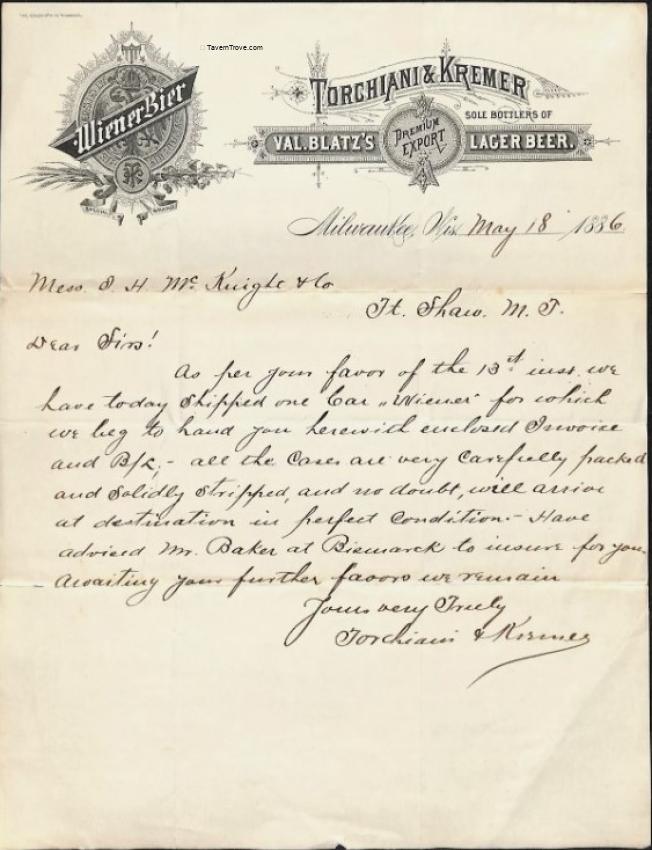 © TavernTrove.com
Wiener Bier
TORCHIANI & KREMER
SOLE BOTTLERS OF
VAL. BLATZ'S PREMIUM EXPORT LAGER BEER.
Milwaukee, Wis. May 18 1886
Mess. J. H. McKnight & Co
Ft. Shaw. M. T.
Dear Sirs!
As per your favor of the 13th inst. we
have today Shipped one Car „Wiener" for which
we beg to hand you herewith enclosed Invoice
and B/L; - all the Cases are very carefully packed
and Solidly Stripped, and no doubt, will arrive
at destination in perfect Condition. - Have
advised Mr. Baker at Bismarck to insure for you.
Awaiting your further favors we remain
Yours very Truly
Torchiani & Kremer